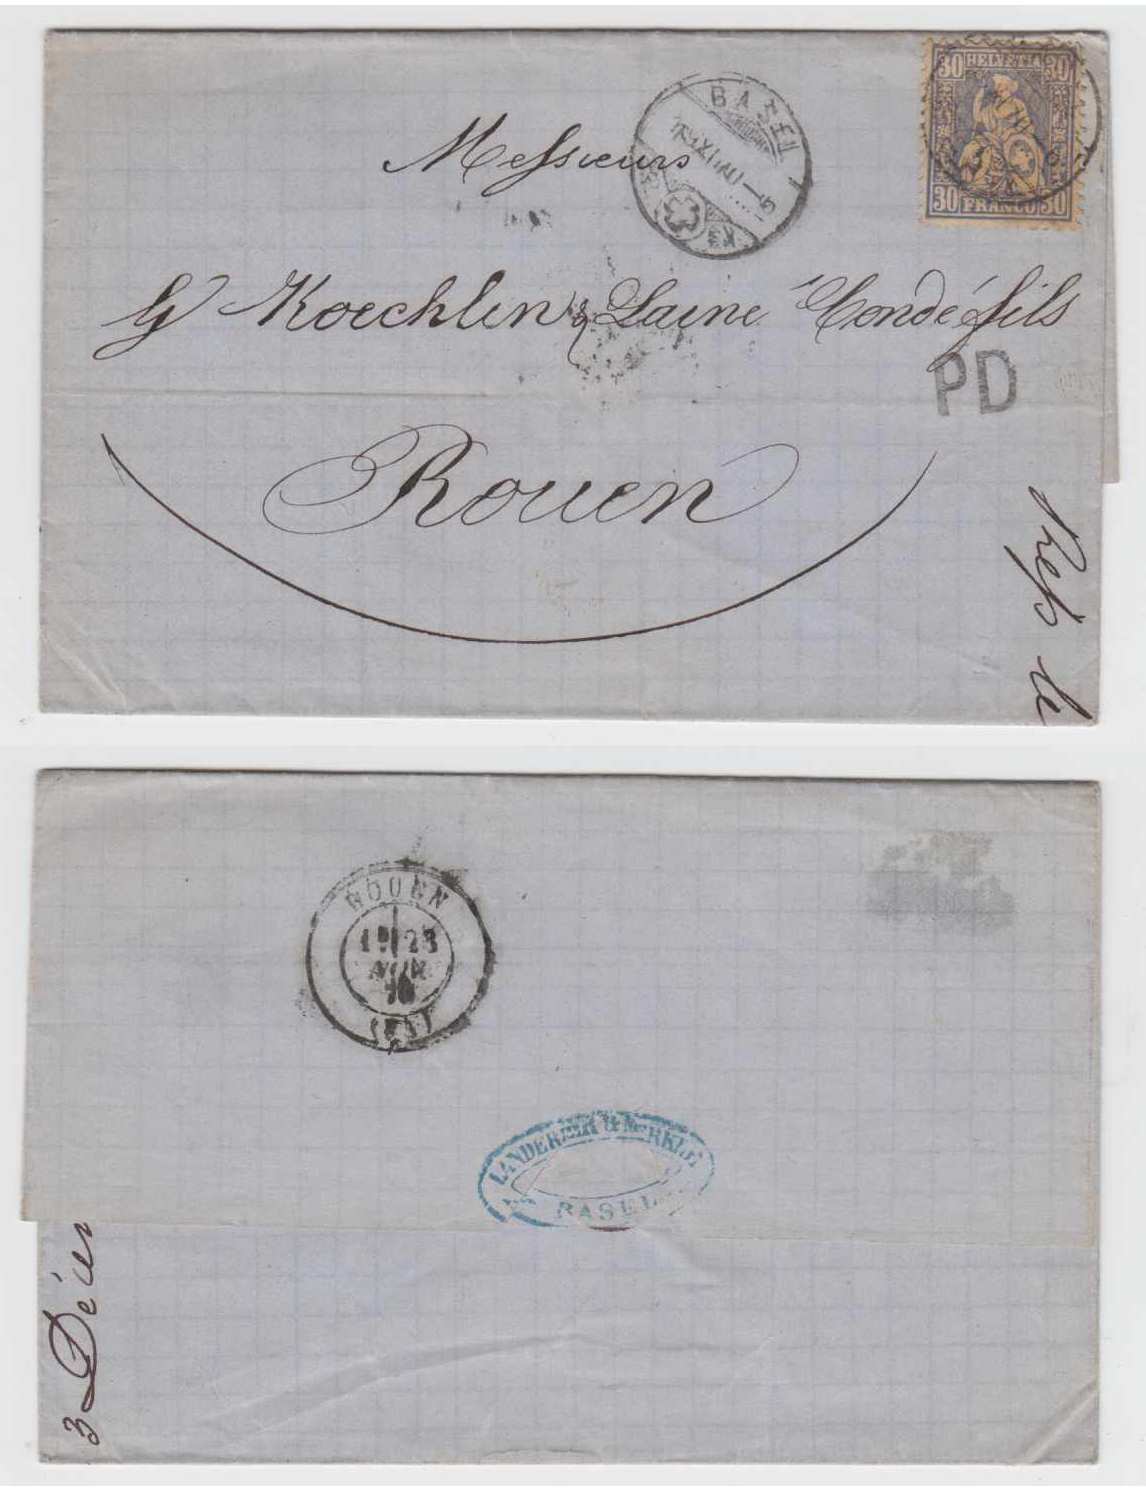 30 HELVETIA 30
30 FRANCO 30
BASEL
Messieurs
Koechlin & Laine Condé fils
PD
Rouen
ROUEN
28
NOV.
70
LANDERER & MERKLE
BASEL
3 Déc